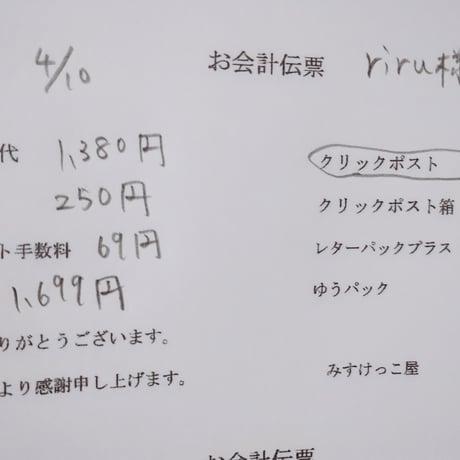 4/10
お会計伝票 riru様
代 1,380円
クリックポスト
250円
クリックポスト箱
ト手数料 69円
レターパックプラス
1,699円
ゆうパック
りがとうございます。
より感謝申し上げます。
みすけっこ屋
お会計伝票